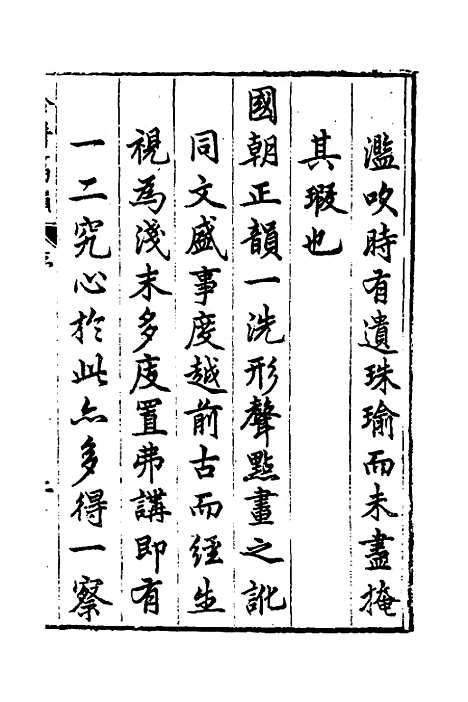 濫吹時有遺珠瑜而未盡掩
其瑕也
國朝正韻一洗形聲點畫之訛
同文盛事度越前古而經生
視為淺末多庋置弗講即有
一二究心於此亦多得一察